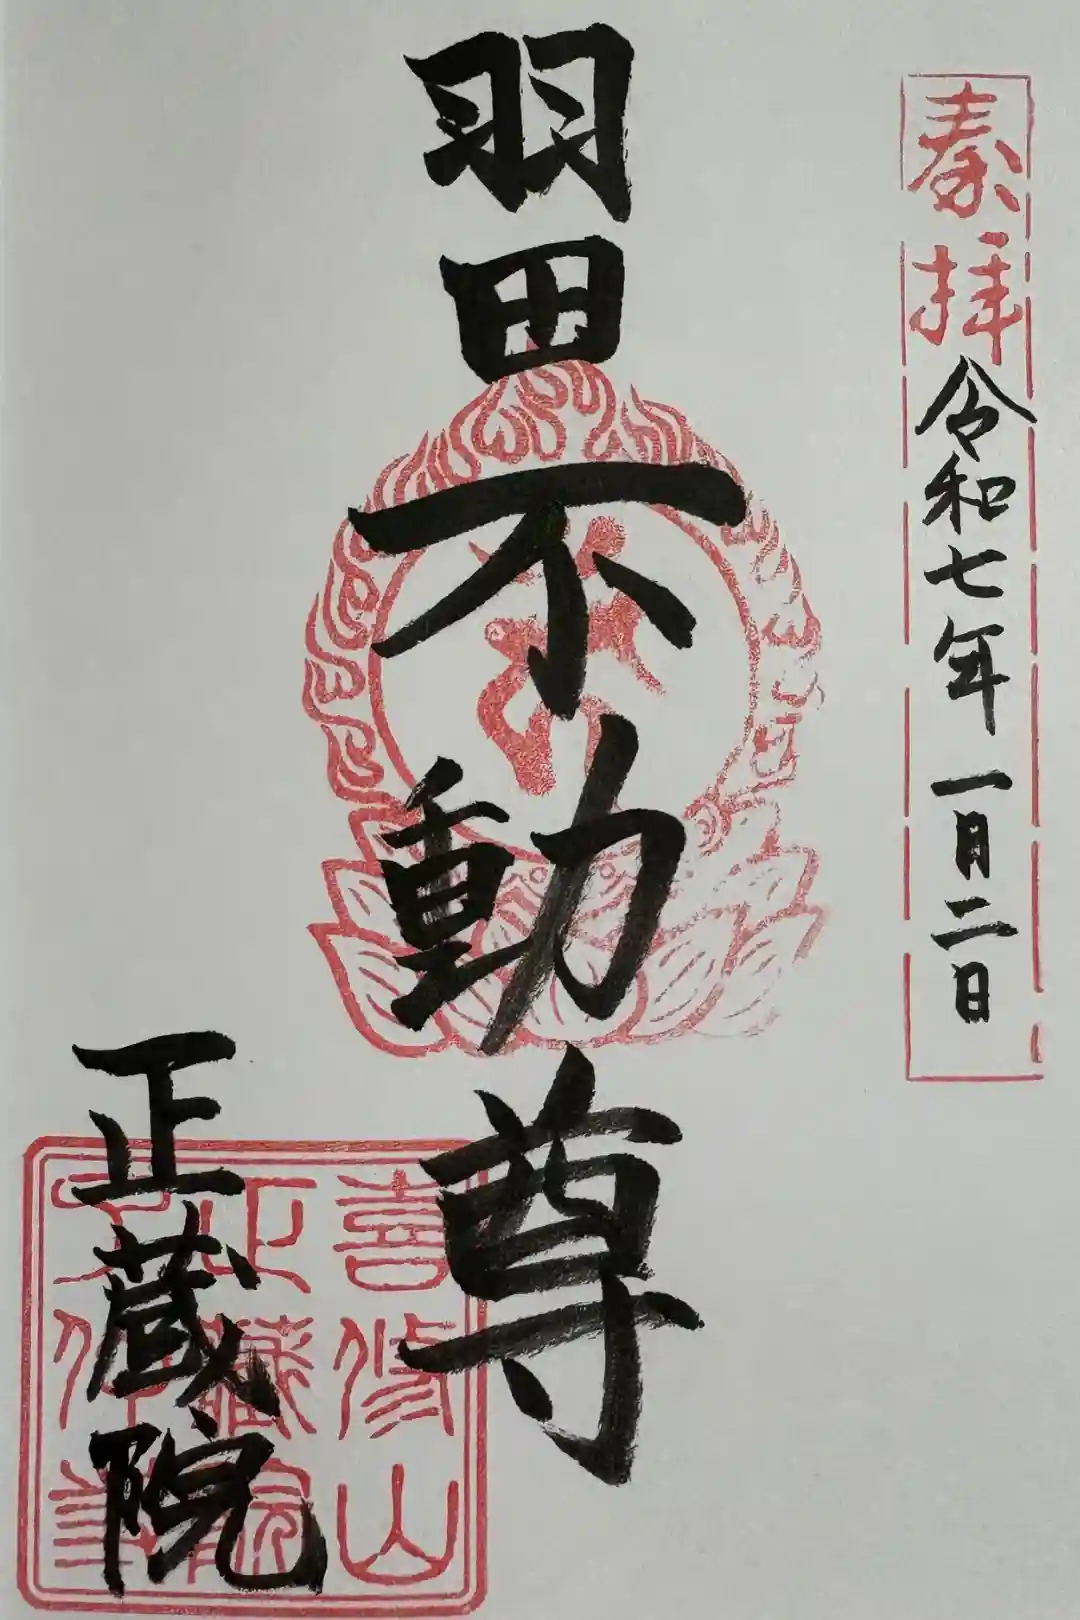 奉拝
令和七年一月二日
羽田不動尊
正蔵院
喜修山
正藏院